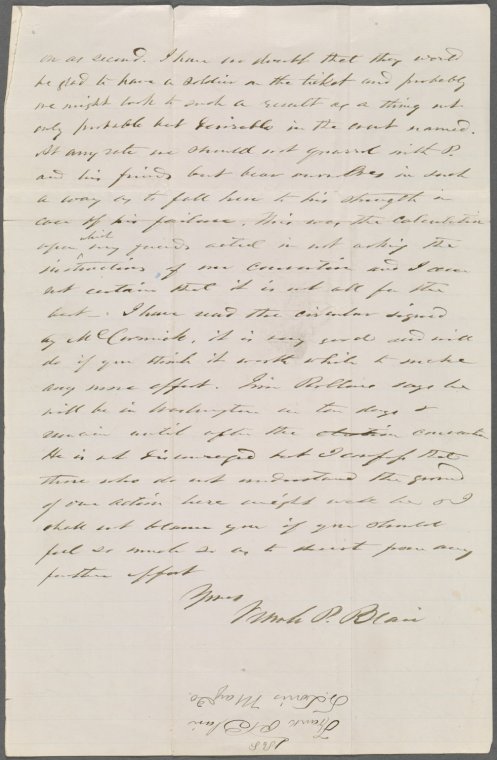 on as second. I have no doubt that they would
be glad to have a soldier on the ticket and probably
we might look to such a result as a thing not
only probable but desirable in the event named.
At any rate we should not quarrel with P.
and his friends but bear ourselves in such
a way as to fall heir to his strength in
case of his failure. This was the calculation
upon which my friends acted in not asking the
instructions of our convention and I am
not certain that it is not all for the
best. I have read the circular signed
by McCormick, it is very good and will
do if you think it worth while to make
any more effort. Jim Rollins says he
will be in Washington in ten days &
remain until after the convention
He is not discouraged but I confess that
those who do not understand the ground
of our action here might well be so & I
shall not blame you if you should
feel so much so as to desist from any
further effort
Yours
Frank P. Blair
1868
Frank P. Blair
St Louis May 20